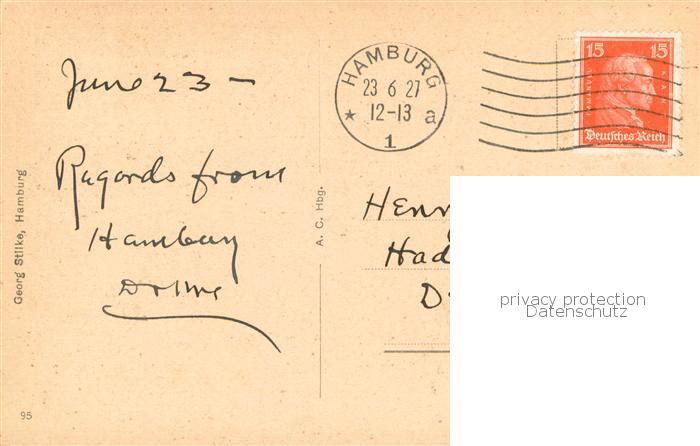 June 23 –
Regards from
Hamburg
HAMBURG
23 6 27
12-13 a
★
1
15 15
IMMANUEL KANT
Deutsches Reich
Georg Stilke, Hamburg
A. C. Hbg.
Henr
Had
D
privacy protection
Datenschutz
95